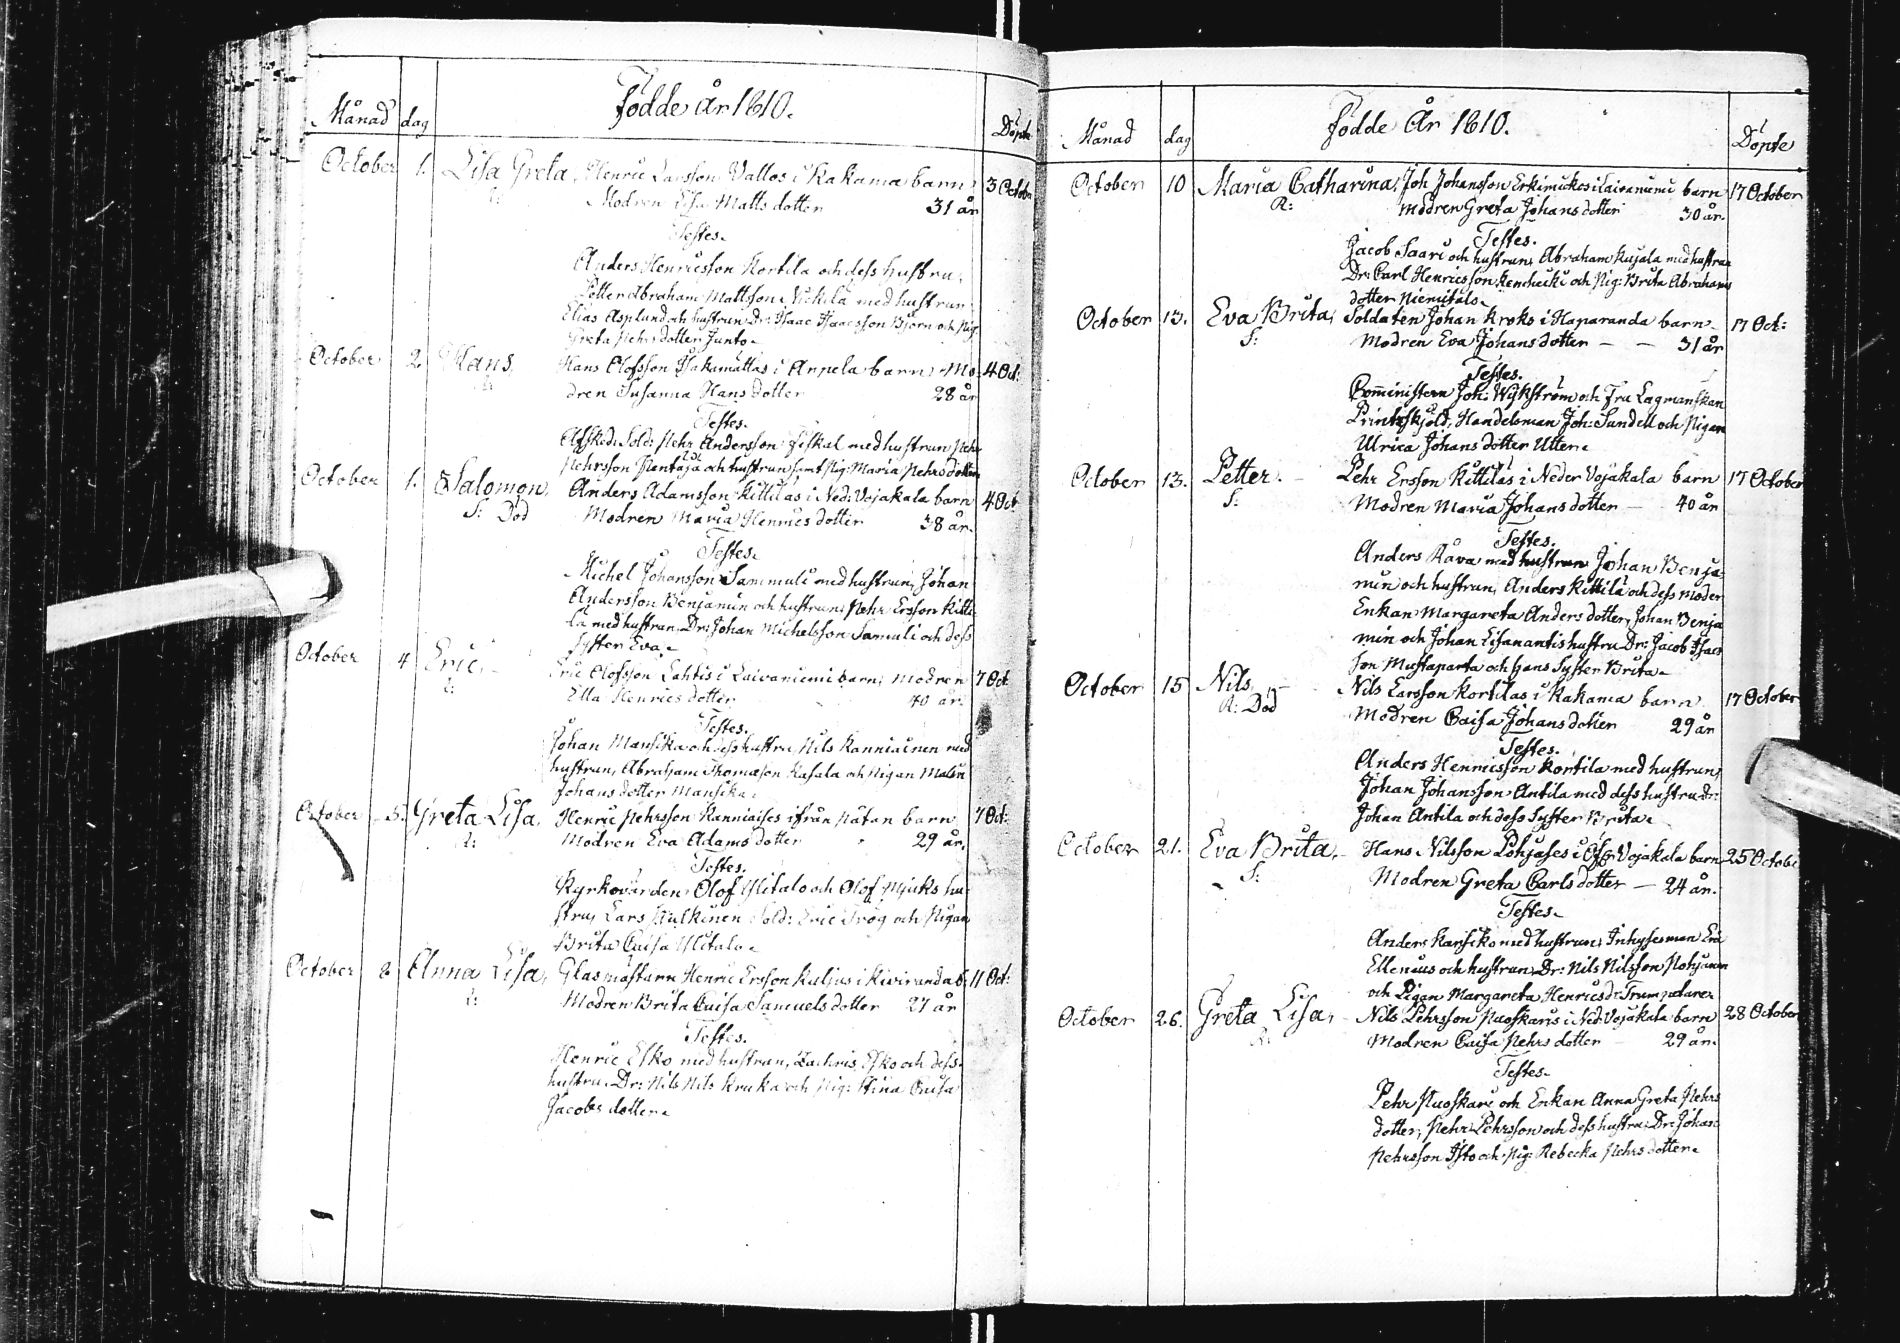 Födde År 1810.
Månad dag Döpte
October 1. Lisa Greta, Henric Larsson Vallos i Kakama barn 3 Octobr
R: Modren Lisa Matts dotter 31 år
Testes.
Anders Henricsson Kortila och dess hustru,
Petter Abraham Mattsson Nickila med hustrun
Elias Asplund och hustrun, Dr: Isaac Isaacsson Björn och Pig:
Greta Pehrs dotter Junto
October 2. Hans, Hans Olofsson i Arpela barn Mo- 4 Oct:
dren Susanna Hans dotter 28 år
Testes.
Afsked: Sold: Pehr Andersson Fiskal med hustrun, Pehr
Pehrsson och hustrun samt Pig: Maria Pehrs dotter
October 1. Salomon, Anders Adamsson Kittilas i Ned: Vojakala barn 4 Oct
S: Död Modren Maria Henrics dotter 38 år.
Testes.
Michel Johansson Sammuli med hustrun, Johan
Andersson Benjamin och hustrun, Pehr Ersson Kitti-
la med hustrun, Dr: Johan Michelsson Samuli och dess
syster Eva.
October 4 Eric, Eric Olofsson Lahtis i Laivaniemi barn, Modren 7 Oct
Ella Henrics dotter 40 år.
Testes.
Johan Mansika och dess hustru, Nils Kanniainen med
hustrun, Abraham Thomasson Kasala och Pigan Malin
Johans dotter Mansika.
October 5. Greta Lisa, Henric Pehrsson Kanniaises ifrån Pätan barn 7 Oct:
R: Modren Eva Adams dotter 29 år.
Testes.
Kyrkovärden Olof Ylitalo och Olof Mjuks hu-
stru, Lars Hulkinen Sold: Eric Trög och Pigan
Brita Caisa Ylitalo.
October 8 Anna Lisa, Glasmästarn Henric Ersson Kuljus i Kiviranda b. 11 Oct:
Modren Brita Caisa Samuels dotter 27 år
Testes.
Henric Esko med hustrun, Zachris Esko och dess
hustru. Dr: Nils Nils Kruka och Pig: Stina Caisa
Jacobs dotter.
Födde År 1810.
Månad dag Döpte
October 10 Maria Catharina, Joh Johansson Erkimickos i Laivaniemi barn 17 October
R: Modren Greta Johans dotter 30 år.
Testes.
Jacob Saari och hustrun, Abraham Kujala med hustrun
Dr: Carl Henricsson och Pig: Brita Abrahams
dotter Niemitalo.
October 13. Eva Brita, Soldaten Johan Kroks i Haparanda barn 17 Oct:
S: Modren Eva Johans dotter — — 31 år
Testes.
Comministern Joh: Wijkström och Fru Lagmanskan
Printzskjöld, Handelsman Joh: Sandell och Pigan
Ulrica Johans dotter Utter.
October 13. Petter. Pehr Ersson Kittilas i Neder Vojakala barn 17 October
S: Modren Maria Johans dotter — 40 år
Testes.
Anders Rava med hustrun Johan Benja-
min och hustrun, Anders Kittila och dess moder
Enkan Margareta Anders dotter, Johan Benja
min och Johan Lisanantis hustru Dr: Jacob Isacs
son Mustaparta och hans Syster Brita.
October 15 Nils, Nils Larsson Kortilas i Kakama barn 17 October
R: Död Modren Caisa Johans dotter 29 år
Testes.
Anders Henricsson Kortila med hustrun,
Johan Johansson Antila med dess hustru Dr:
Johan Antila och dess Syster Brita.
October 21. Eva Brita, Hans Nilsson Pohjases i Öfr: Vojakala barn 25 Octobr
S: Modren Greta Carls dotter — 24 år.
Testes.
Anders Karsiko med hustrun, Inhysesman Eric
Ellenius och hustrun, Dr: Nils Nilsson Pohjanen
och Pigan Margareta Henrics dr: Trumpetare
October 26. Greta Lisa, Nils Pehrsson Ruoskaris i Ned. Vojakala barn 28 October
R: Modren Caisa Pehrs dotter — 29 år.
Testes.
Pehr Ruoskari och Enkan Anna Greta Pehrs
dotter, Pehr Pehrsson och dess hustru, Dr: Johan
Pehrsson Isto och Pig: Rebecka Pehrs dotter.